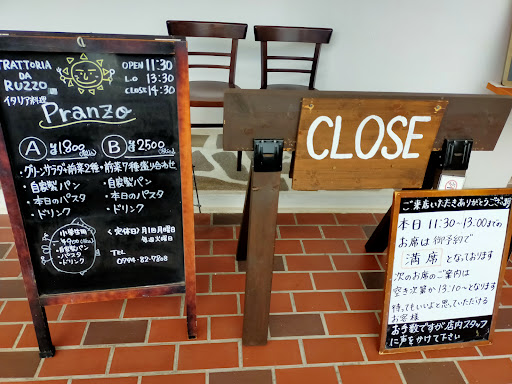 TRATTORIA
DA
RUZZO
イタリア料理
OPEN 11:30
L.O 13:30
CLOSE 14:30
Pranzo
A ¥1800
B ¥2500
・グリーンサラダ+前菜2種
・自家製パン
・本日のパスタ
・ドリンク
・前菜7種盛り合わせ
・自家製パン
・本日のパスタ
・ドリンク
¥900
・自家製パン
・パスタ
・ドリンク
TEL
0794-82-7808
CLOSE
ご来店いただきありがとうございます
本日 11:30~13:00までの
お席は御予約で
満席となっております
次のお席のご案内は
空き次第か13:10~となります
待ってもいいよと思っていただける
お客様
お手数ですが店内スタッフ
に声をかけて下さい